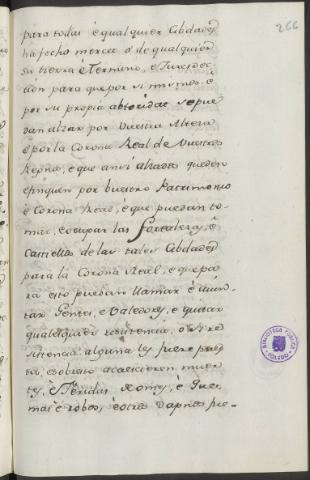 266
para todas è qualquier Cibdades
ha fecho merced ó de qualquier
su tierra è Termino, è Jurisdic
cion para que por si mismos è
por su propia abtoridat se pue
dan alzar por Vuestra Alteza
è por la Corona Real de Vuestros
Regnos, è que ansi alzados queden
è finquen por buestro Patrimonio
è Corona Real, è que puedan to-
mar, è ocupar las fortalezas, è
Castillos de las tales Cibdades
para la Corona Real, è que pa
ra esto puedan llamar è iuun
tar Gentes, è Valedores, è quitar
qualesquier resistencia, ó si re
sistencia alguna les fuere
è sobre esto acaescieren muer
tes, è feridas è
mas è robos, è otros dapños fue-
BIBLIOTECA PUBLICA
TOLEDO